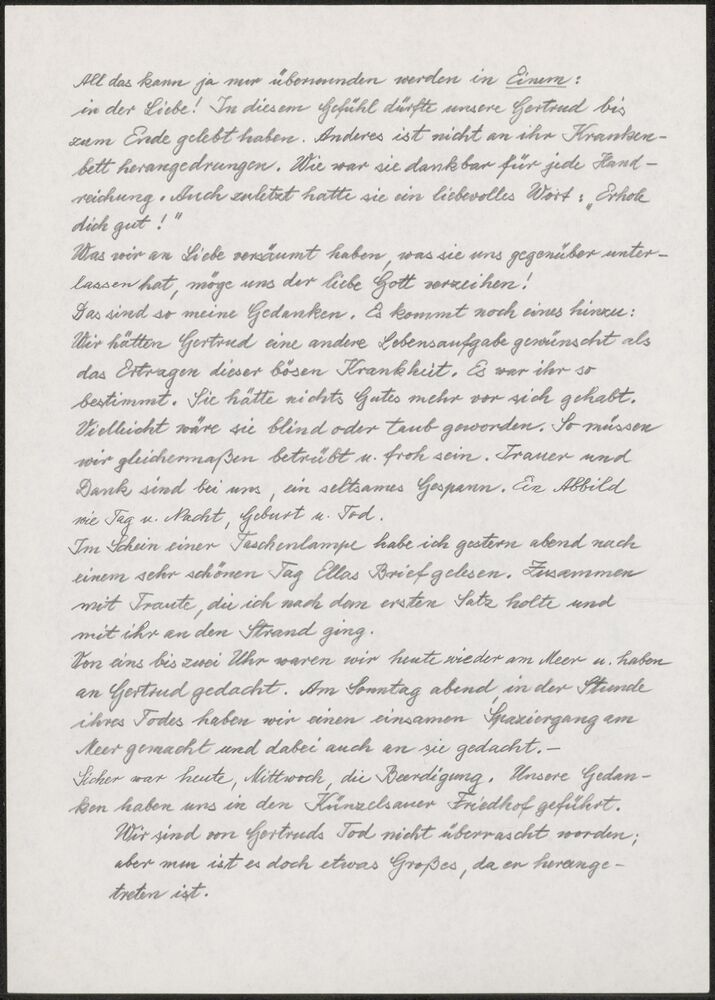 All das kann ja nur überwunden werden in Einem:
in der Liebe! In diesem Gefühl dürfte unsere Gertrud bis
zum Ende gelebt haben. Anderes ist nicht an ihr Kranken-
bett herangedrungen. Wie war sie dankbar für jede Hand-
reichung. Auch zuletzt hatte sie ein liebevolles Wort: „Erhole
dich gut!"
Was wir an Liebe versäumt haben, was sie uns gegenüber unter-
lassen hat, möge uns der liebe Gott verzeihen!
Das sind so meine Gedanken. Es kommt noch eines hinzu:
Wir hätten Gertrud eine andere Lebensaufgabe gewünscht als
das Ertragen dieser bösen Krankheit. Es war ihr so
bestimmt. Sie hätte nichts Gutes mehr vor sich gehabt.
Vielleicht wäre sie blind oder taub geworden. So müssen
wir gleichermaßen betrübt u. froh sein. Trauer und
Dank sind bei uns, ein seltsames Gespann. Ein Abbild
wie Tag u. Nacht, Geburt u. Tod.
Im Schein einer Taschenlampe habe ich gestern abend nach
einem sehr schönen Tag Ellas Brief gelesen. Zusammen
mit Traute, die ich nach dem ersten Satz holte und
mit ihr an den Strand ging.
Von eins bis zwei Uhr waren wir heute wieder am Meer u. haben
an Gertrud gedacht. Am Sonntag abend in der Stunde
ihres Todes haben wir einen einsamen Spaziergang am
Meer gemacht und dabei auch an sie gedacht. –
Sicher war heute, Mittwoch, die Beerdigung. Unsere Gedan-
ken haben uns in den Künzelsauer Friedhof geführt.
Wir sind von Gertruds Tod nicht überrascht worden;
aber nun ist es doch etwas Großes, da er herange-
treten ist.